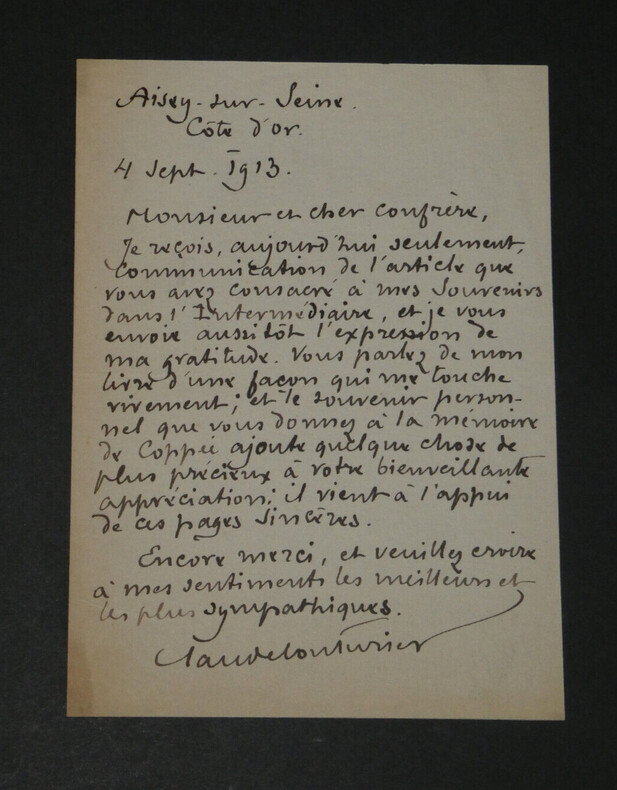 Aisey-sur-Seine.
Côte d'or.
4 Sept. 1913.
Monsieur et cher confrère,
Je reçois, aujourd'hui seulement,
communication de l'article que
vous avez consacré à mes Souvenirs
dans l'Intermédiaire, et je vous
envoie aussitôt l'expression de
ma gratitude. Vous parlez de mon
livre d'une façon qui me touche
vivement; et le souvenir person-
nel que vous donnez à la mémoire
de Coppée ajoute quelque chose de
plus précieux à votre bienveillante
appréciation; il vient à l'appui
de ces pages sincères.
Encore merci, et veuillez croire
à mes sentiments les meilleurs et
les plus sympathiques.
Claude Couturier